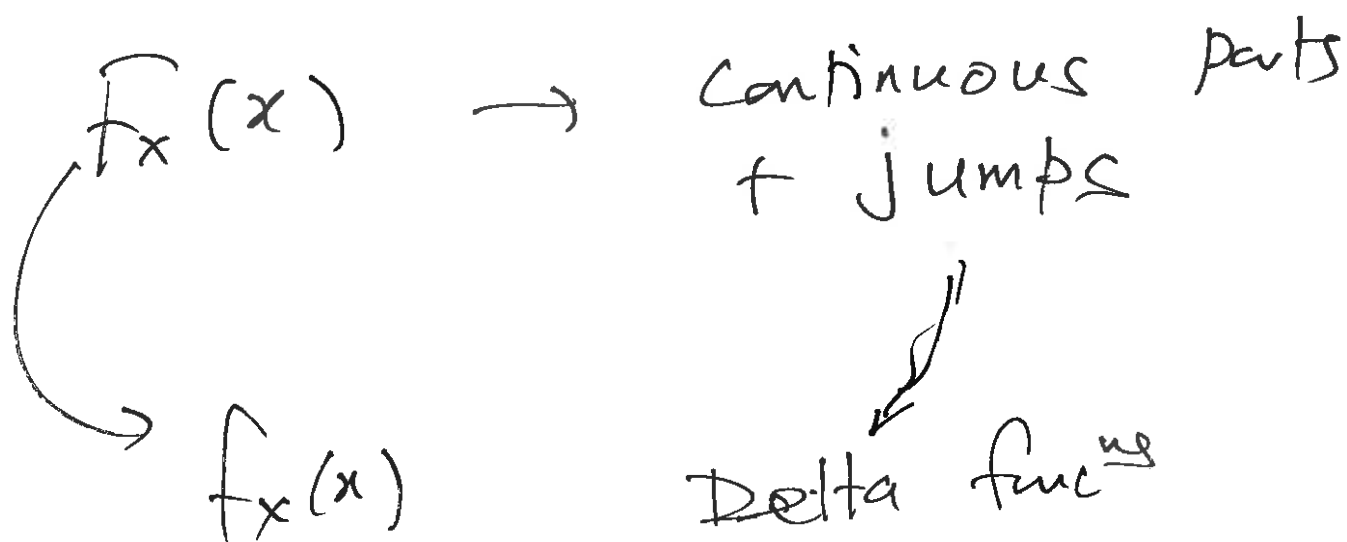 F_X(x) → Continuous parts
+ jumps
f_X(x) Delta func^ns